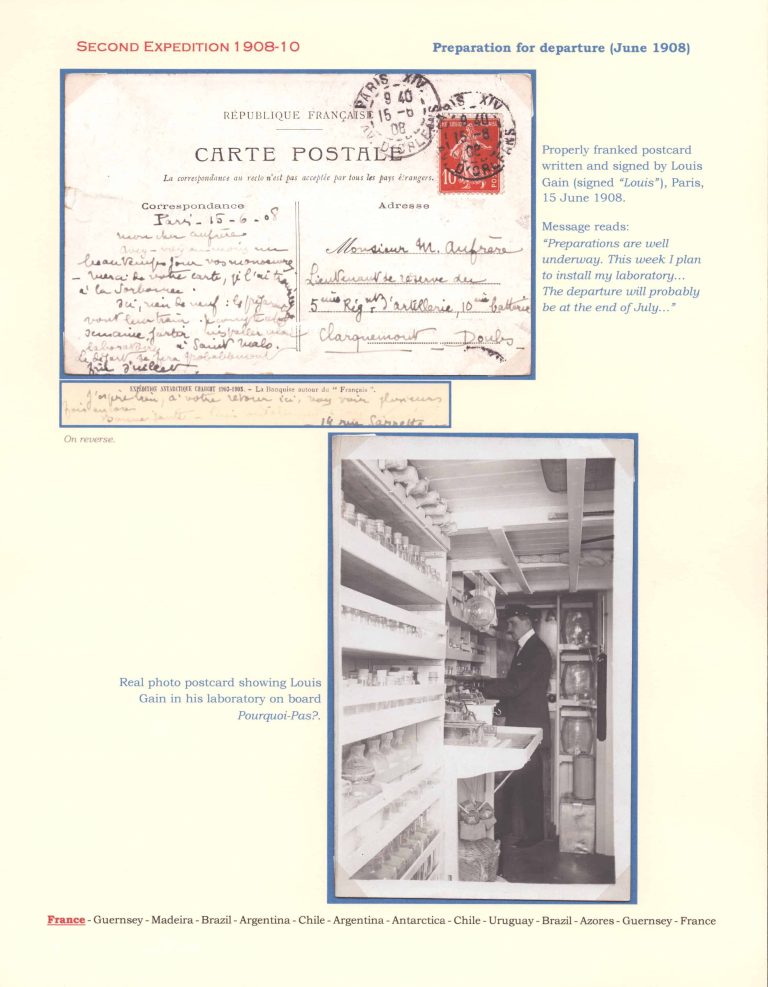 SECOND EXPEDITION 1908-10
Preparation for departure (June 1908)
RÉPUBLIQUE FRANÇAISE
CARTE POSTALE
La correspondance au recto n'est pas acceptée par tous les pays étrangers.
PARIS XIV
9 40
15 -6
08
AV. D'ORLEANS
PARIS XIV
9 40
15 -6
08
AV. D'ORLEANS
10
Correspondance
Paris - 15 - 6 - 08
mon cher aufrère
beau temps pour vos manoeuvres
- merci de votre carte, je l'ai trouvée
à la Sorbonne.
Ici, rien de neuf: les préparatifs
vont leur train
semaine partir installer mon
laboratoire à Saint Malo.
Le départ se fera probablement
fin Juillet
Adresse
Monsieur M. Aufrère
Lieutenant de réserve au
5ème Régnt d'artillerie, 10ème batterie
Doubs
Properly franked postcard
written and signed by Louis
Gain (signed “Louis”), Paris,
15 June 1908.
Message reads:
“Preparations are well
underway. This week I plan
to install my laboratory…
The departure will probably
be at the end of July…”
EXPÉDITION ANTARCTIQUE CHARCOT 1903-1905. - La Banquise autour du " Français ".
J'espère bien, à votre retour ici, vous voir plusieurs
14 rue
On reverse.
Real photo postcard showing Louis
Gain in his laboratory on board
Pourquoi-Pas?.
France - Guernsey - Madeira - Brazil - Argentina - Chile - Argentina - Antarctica - Chile - Uruguay - Brazil - Azores - Guernsey - France